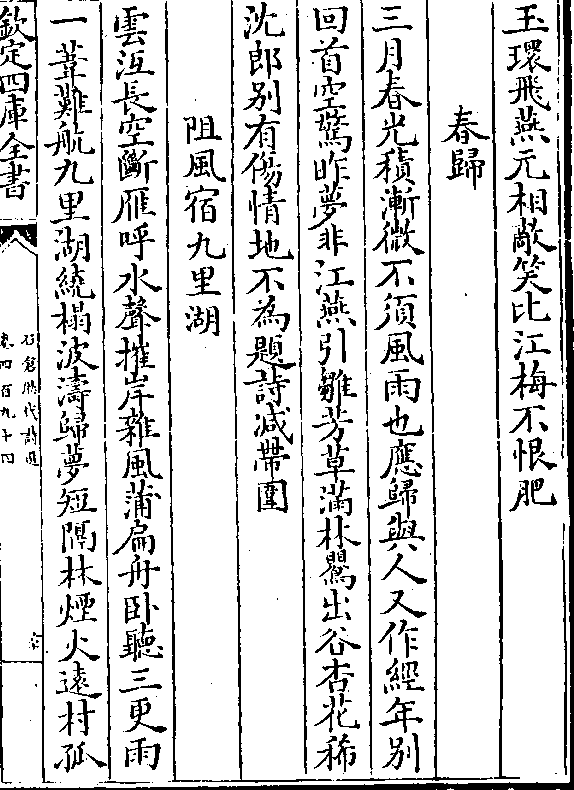 玉環飛燕元相敵笑比江梅不恨肥
春歸
三月春光積漸微不須風雨也應歸與人又作經年别
回首空驚昨夢非江燕引雛芳草滿林鸎出谷杏花稀
沈郎别有傷情地不為題詩減帶圍
阻風宿九里湖
雲沍長空斷雁呼水聲摧岸雜風蒲扁舟卧聽三更雨
一葦難航九里湖繞榻波濤歸夢短隔林煙火遠村孤
欽定四庫全書
石倉歴代詩選
卷四百九十四